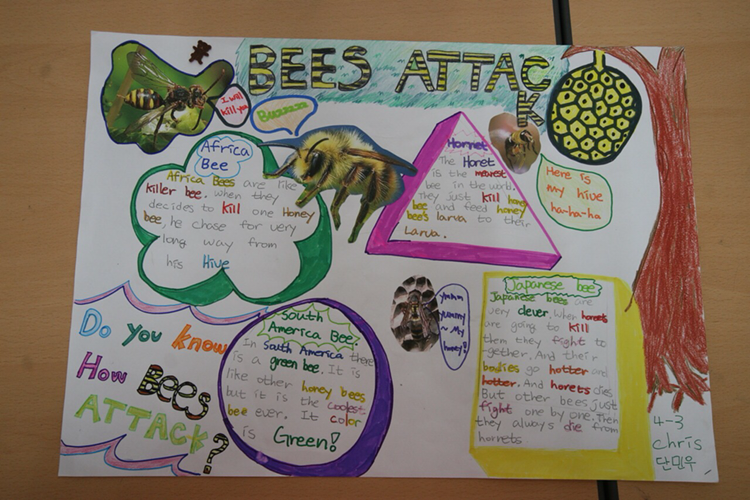 BEES ATTACK
I will
kill you
Buzzzzzz
Africa
Bee
Africa Bees are like
killer bee. When they
decides to kill one Honey
bee, he chase for very
long way from
his Hive
Hornet
The Horet
is the meanest
bee in the world.
They just kill honey
bee and feed honey
bee's larva to their
Larva.
Here is
my hive
ha-ha-ha
Do you know
How BEES
ATTACK?
South
America Bee.
In south America there
is a green bee. It is
like other honey bees
but it is the coolest
bee ever. It color
is Green!
yumm
yummy
~ My
honey!
Japanese bee
Japanese bees are
very clever. When horets
are going to kill
them they fight to
-gether. And their
bodies go hotter and
hotter. And horets dies
But other bees just
fight one by one. Then
they always die from
hornets
4-3
Chris
단민우